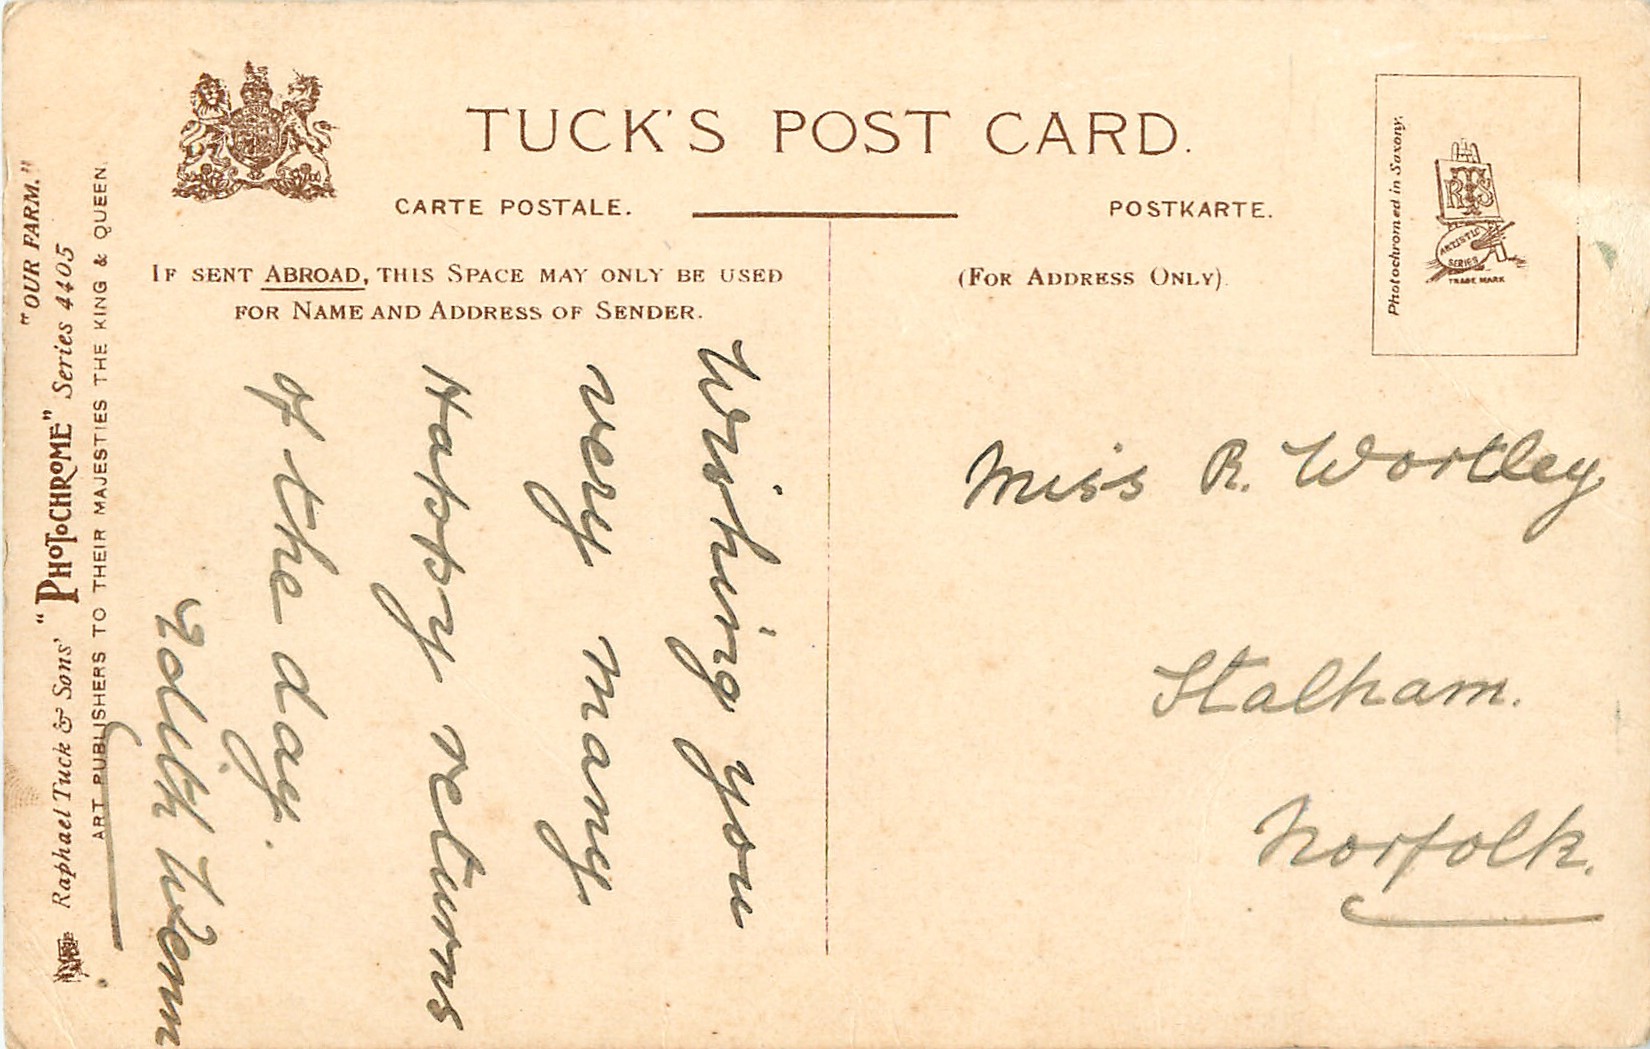 TUCK'S POST CARD.
CARTE POSTALE.
POSTKARTE.
IF SENT ABROAD, THIS SPACE MAY ONLY BE USED
FOR NAME AND ADDRESS OF SENDER.
(FOR ADDRESS ONLY)
Photochromed in Saxony.
RTS
ARTISTIC
SERIES
TRADE MARK
"OUR FARM."
Raphael Tuck & Sons' "PHOTOCHROME" Series 4405
ART PUBLISHERS TO THEIR MAJESTIES THE KING & QUEEN.
Wishing you
very many
Happy returns
of the day.
Edith
Miss R. Wortley
Stalham.
Norfolk.